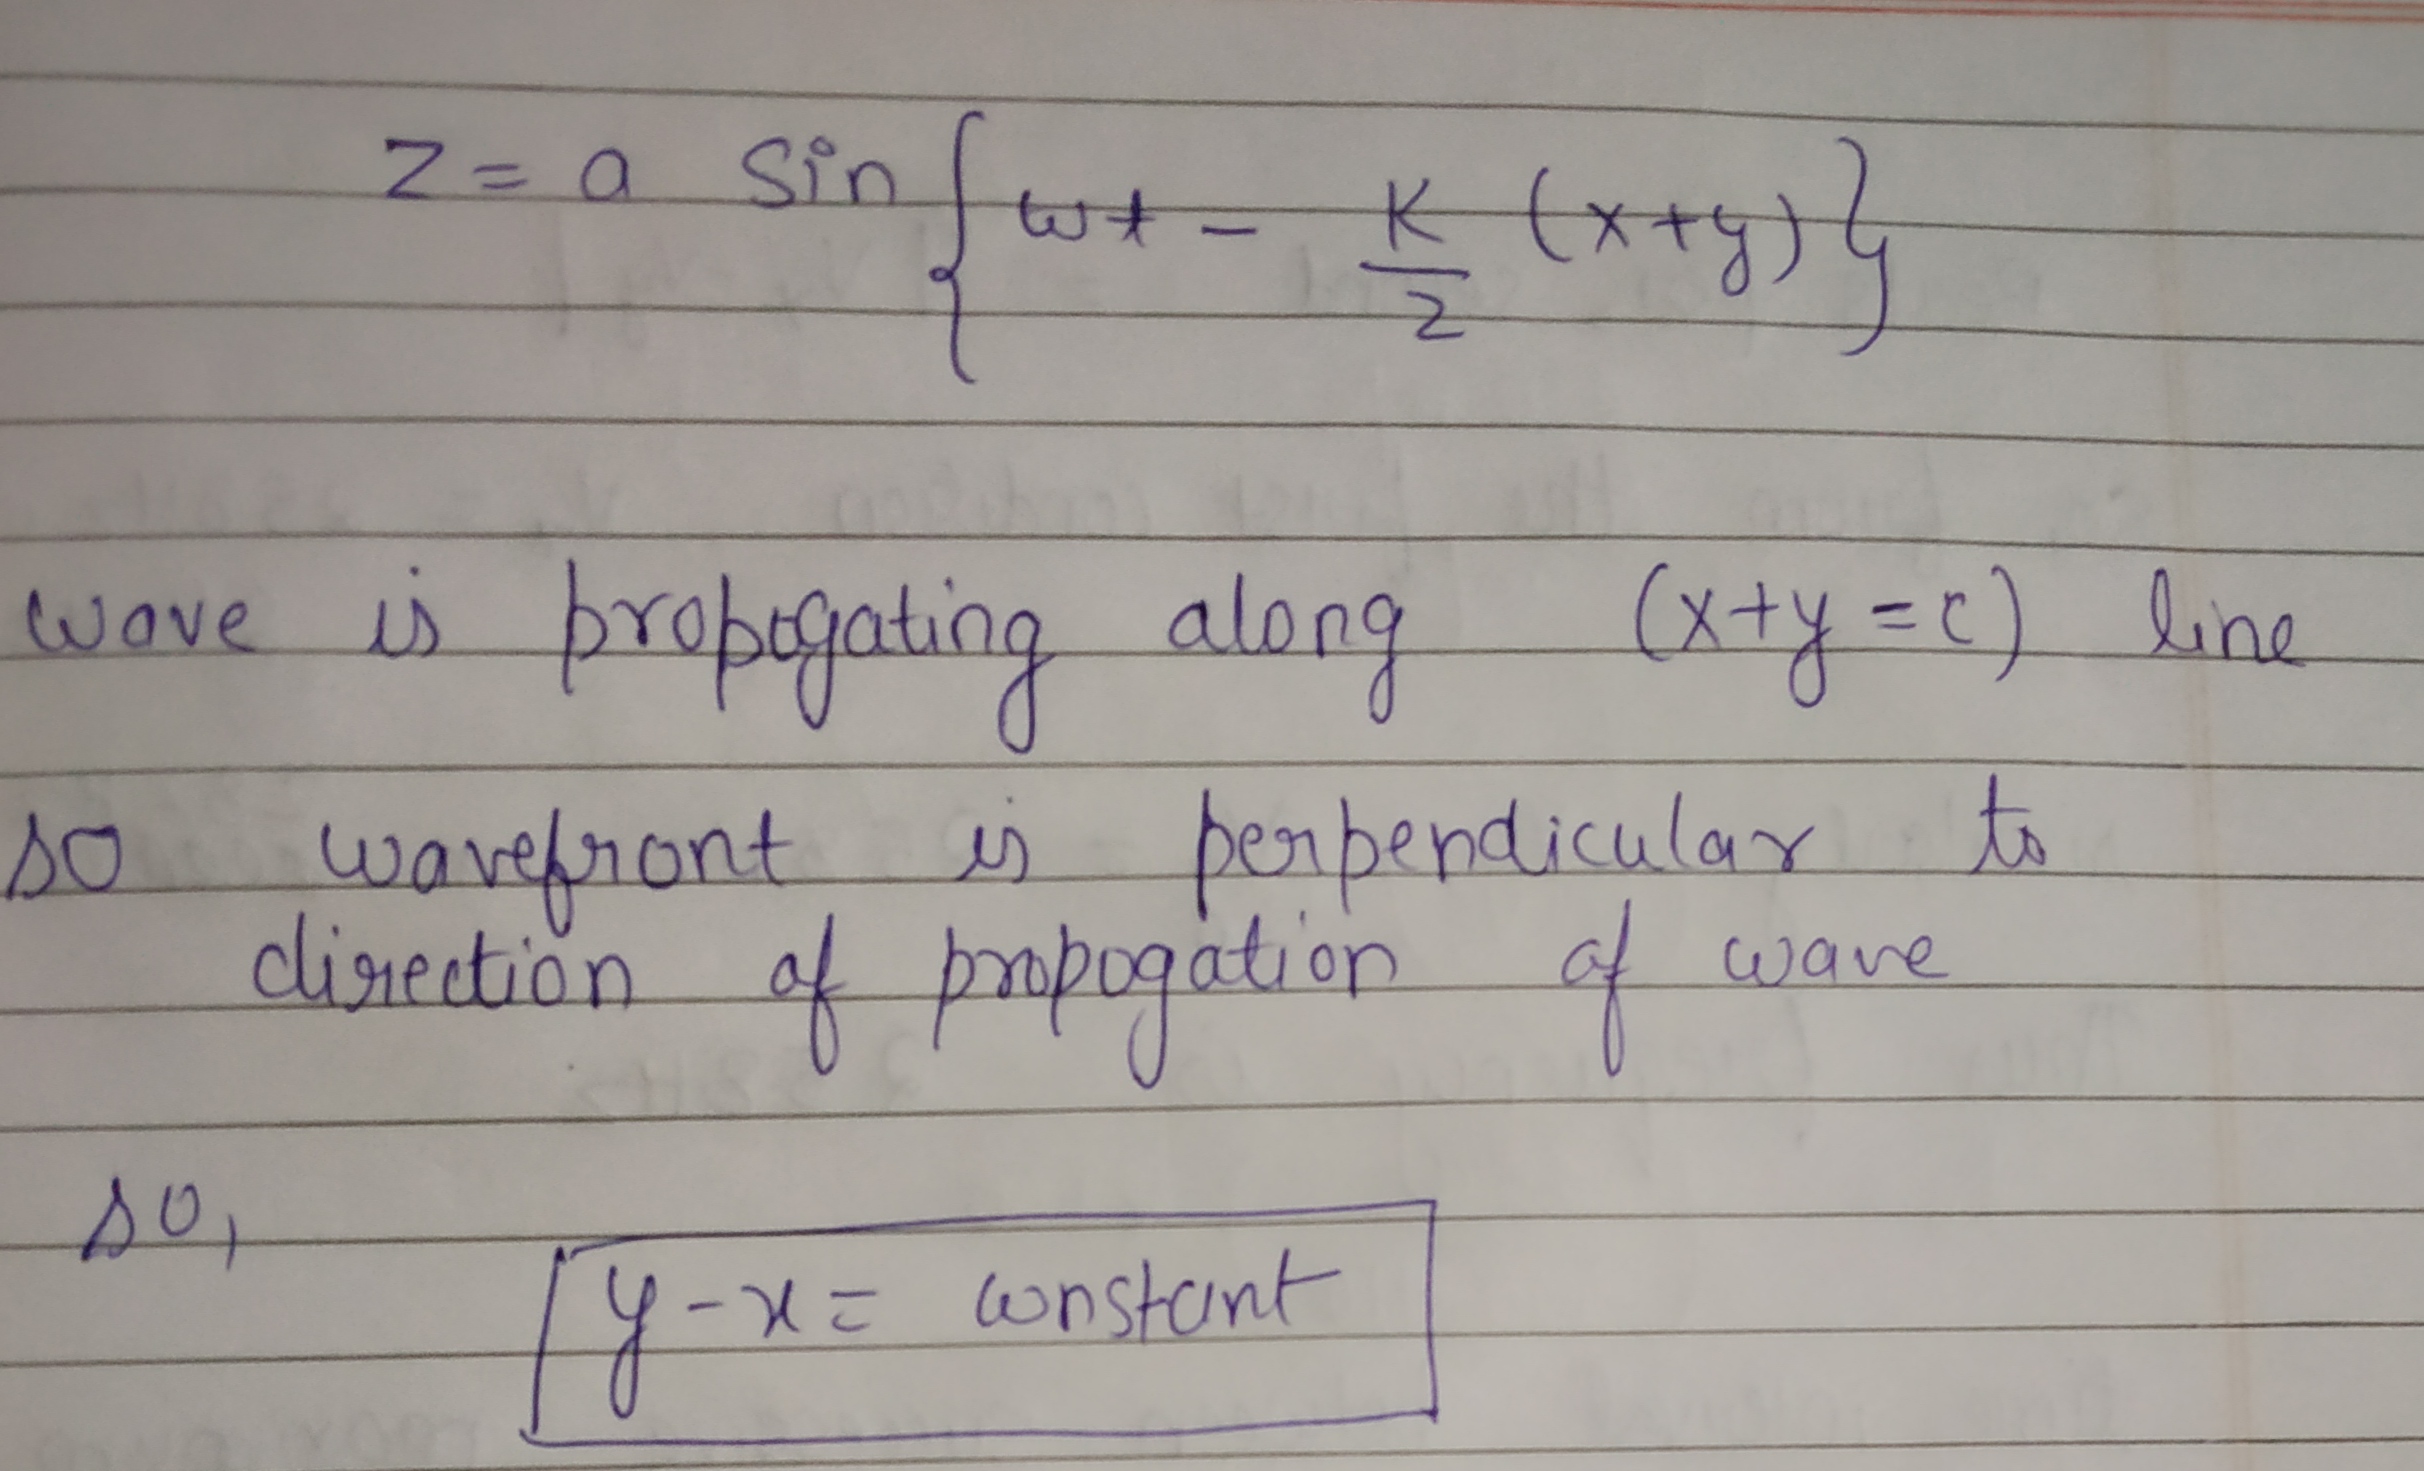 z = a sin { ωt - K/2 (x+y) }
wave is propogating along (x+y=c) line
so wavefront is perpendicular to
direction of propogation of wave
so,
y-x = constant